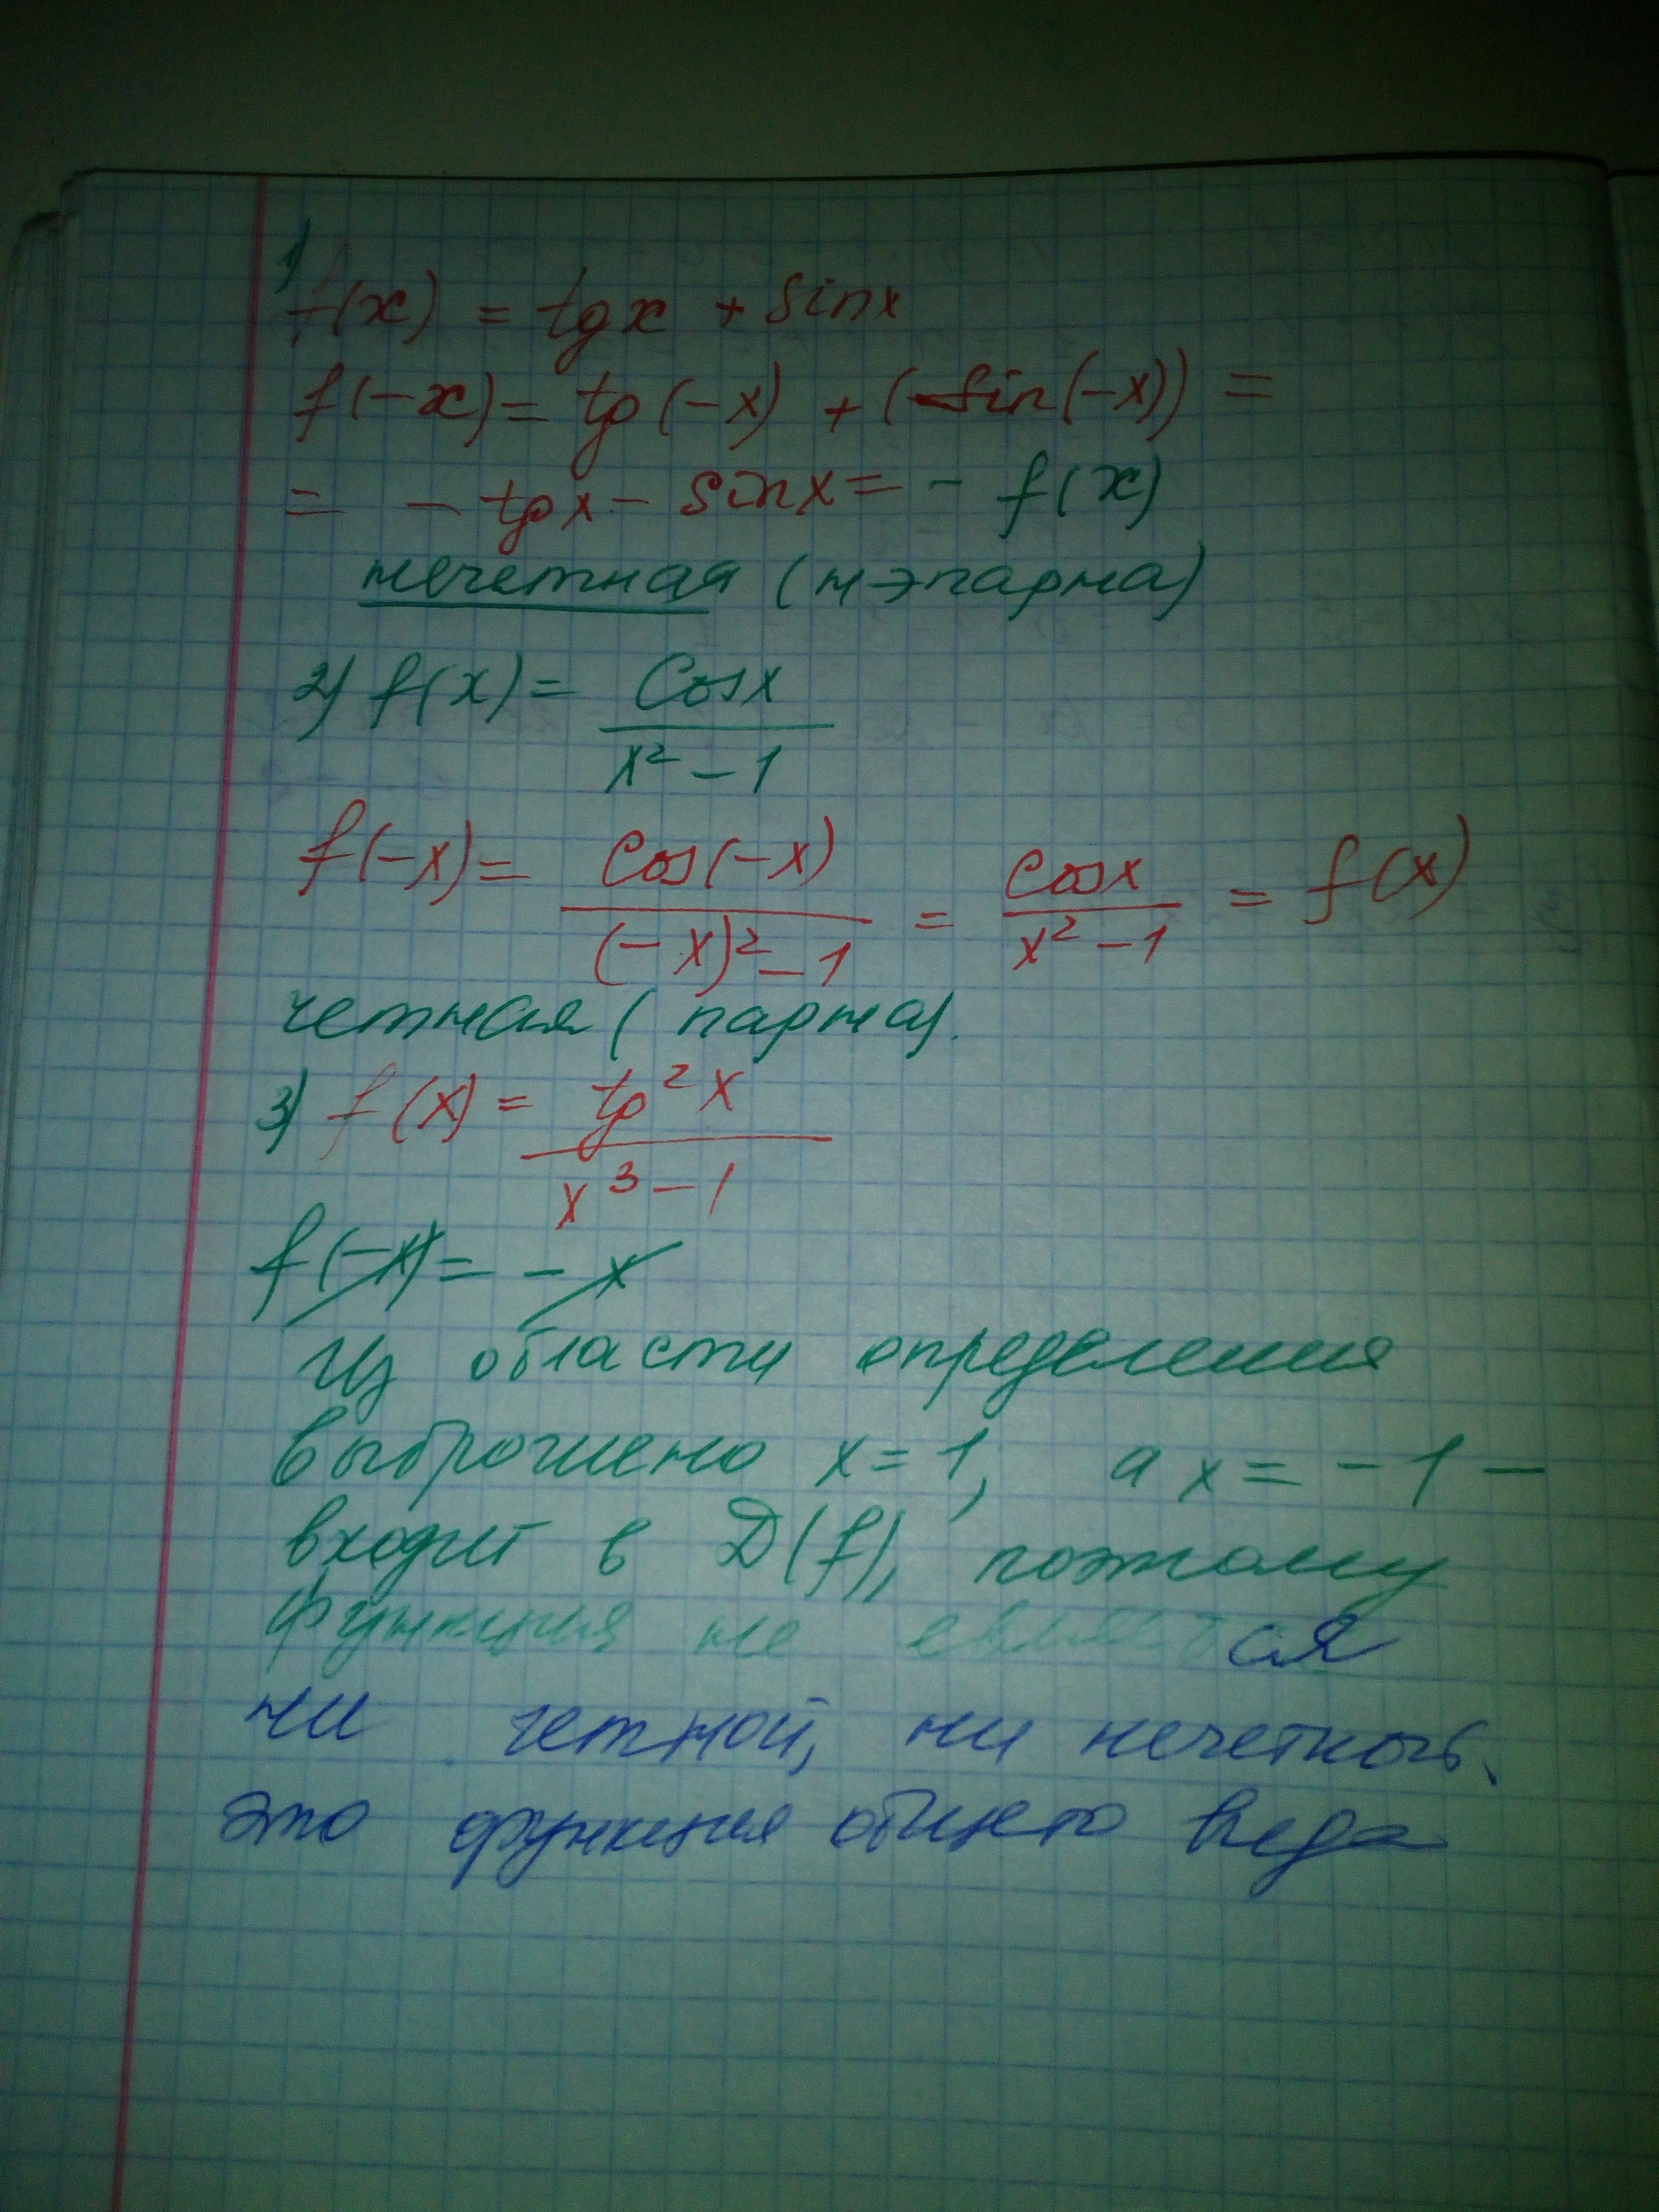 1)
f(x) = tgx + sinx
f(-x) = tg(-x) + (sin(-x)) =
= - tgx - sinx = - f(x)
нечетная (нэпарна)
2) f(x) = cosx / x² - 1
f(-x) = cos(-x) / (-x)² - 1 = cosx / x² - 1 = f(x)
четная (парна).
3) f(x) = tg²x / x³ - 1
f(-x) = - x
Из области определения
выброшено x = 1, а x = -1 -
входит в D(f), поэтому
функция не является
ни четной, ни нечетной.
это функция общего вида